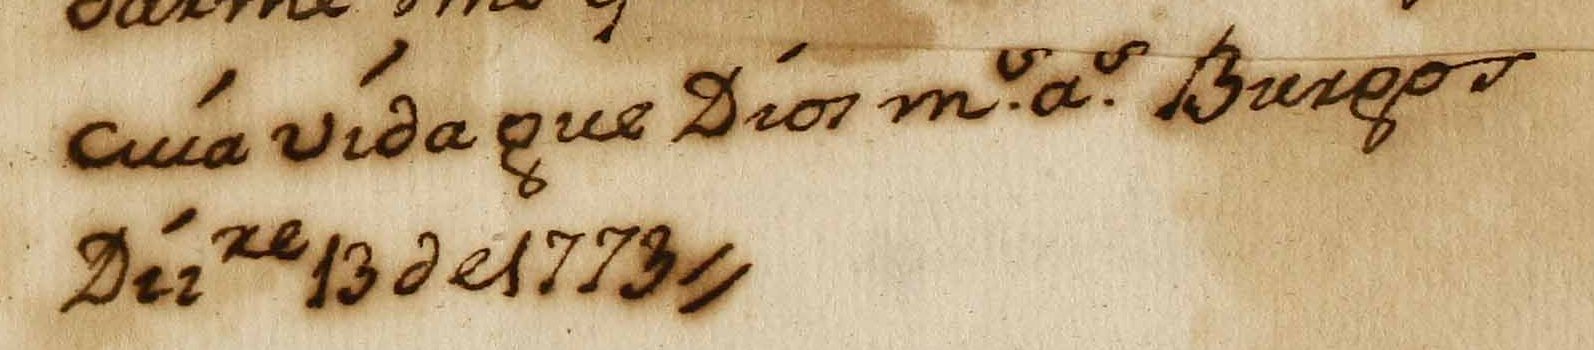 cuia vida que Dios m.s a.s Burgos
Diz.re 13 de 1773